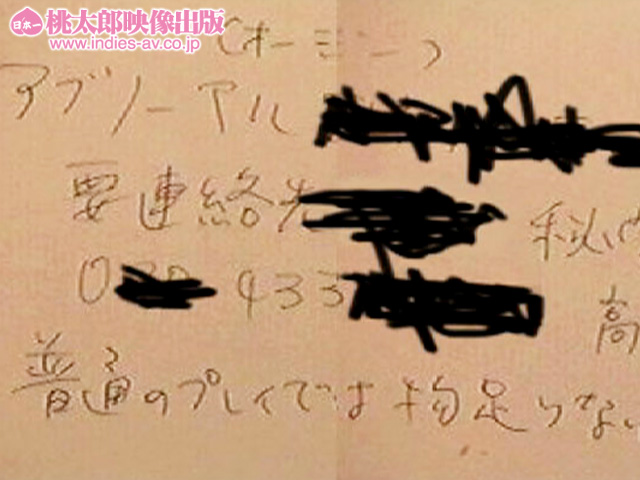 日本一 桃太郎映像出版
www.indies-av.co.jp
(オージー)
アブノーマル
要連絡先
0 433
高
普通のプレイでは物足りない